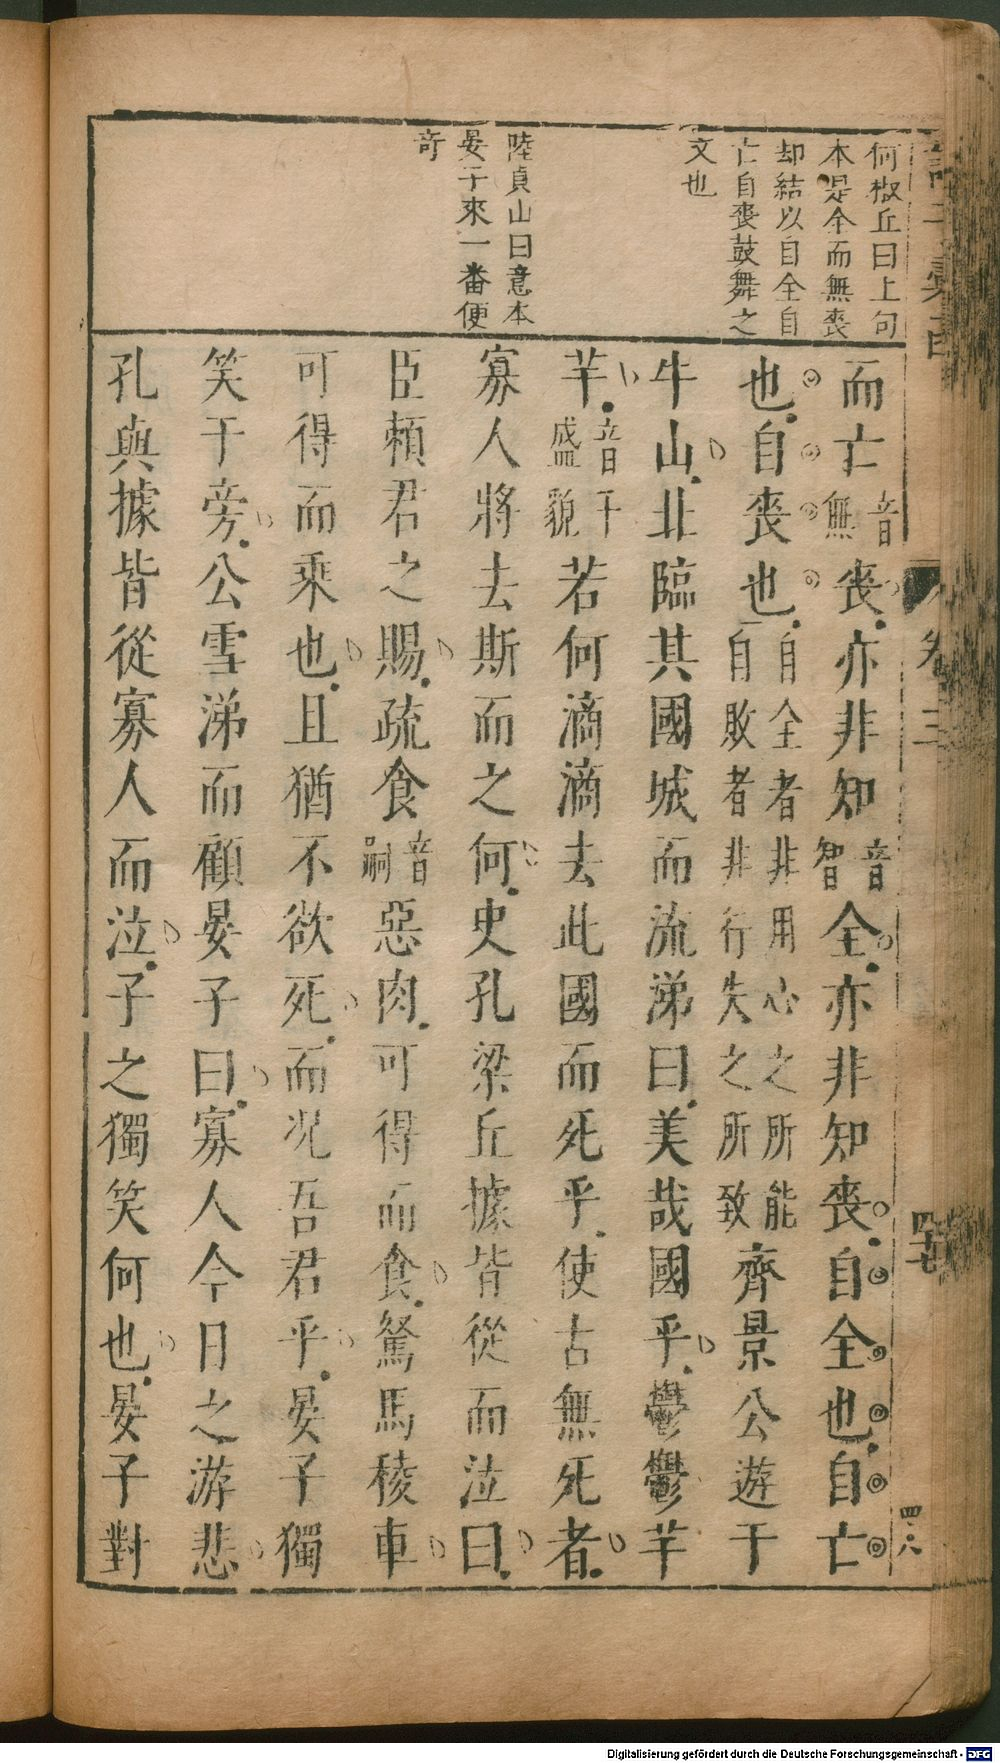 何椒丘曰上句
本是全而無喪
却結以自全自
亡自喪鼓舞之
文也
陸貞山曰意本
晏子來一番便
奇
而亡音無喪亦非知音智全亦非知喪自全也自亡
也自喪也自全者非用心之所能自敗者非行失之所致齊景公遊于
牛山北臨其國城而流涕曰美哉國乎鬱鬱芊
芊音千盛貌若何滴滴去此國而死乎使古無死者
寡人將去斯而之何史孔梁丘據皆從而泣曰
臣賴君之賜疏食音嗣惡肉可得而食駑馬稜車
可得而乘也且猶不欲死而况吾君乎晏子獨
笑于旁公雪涕而顧晏子曰寡人今日之游悲
孔與據皆從寡人而泣子之獨笑何也晏子對
卷三
四十七
四八
Digitalisierung gefördert durch die Deutsche Forschungsgemeinschaft - DFG